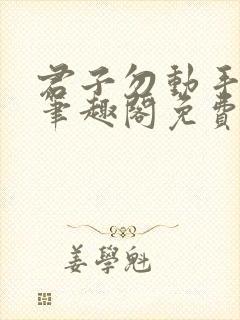 君子勿動手
筆趣閣免費
姜學魁